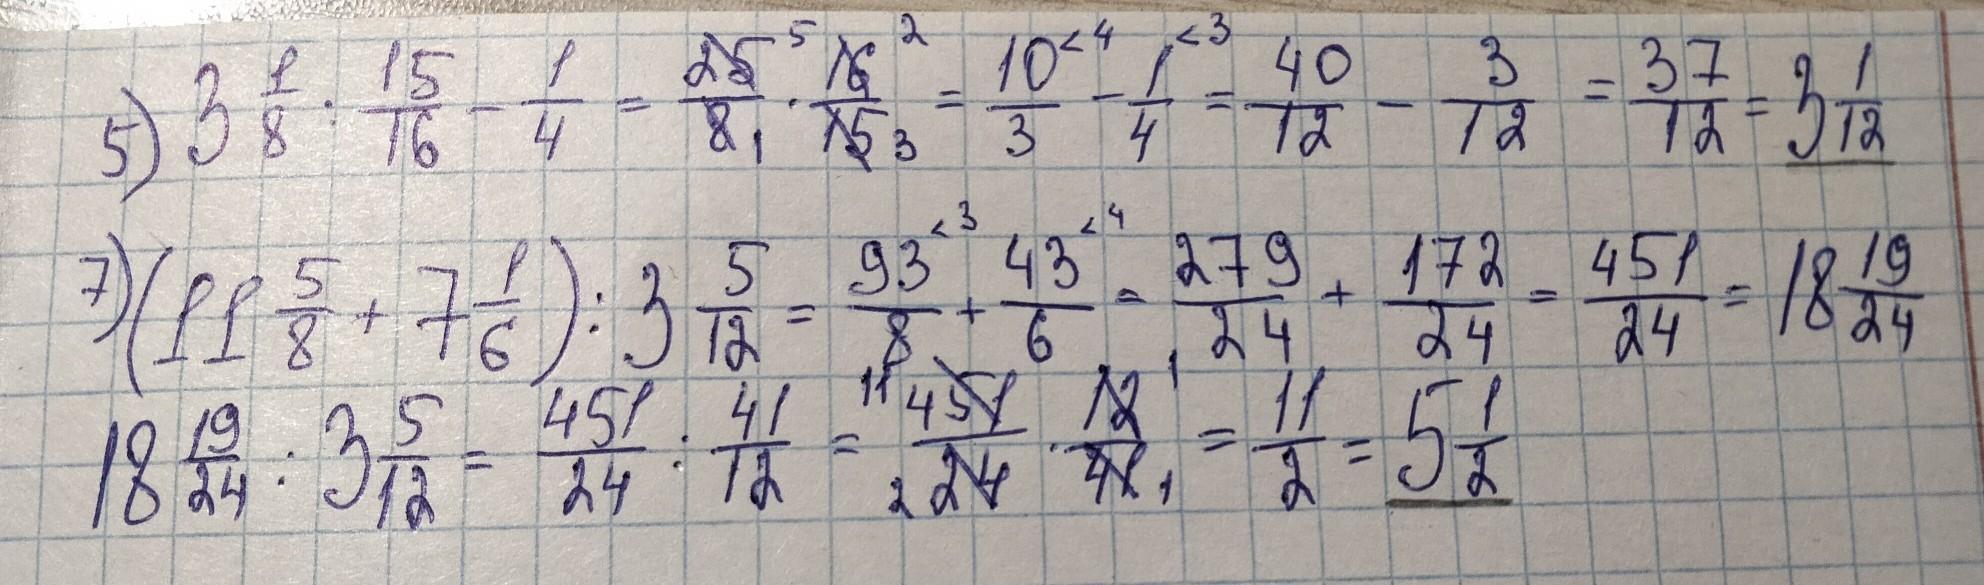 5) 3 1/8 : 15/16 - 1/4 = 25/8 5 1 · 16/15 2 3 = 10/3 <4 - 1/4 <3 = 40/12 - 3/12 = 37/12 = 3 1/12
7) (11 5/8 + 7 1/6) : 3 5/12 = 93/8 <3 + 43/6 <4 = 279/24 + 172/24 = 451/24 = 18 19/24
18 19/24 : 3 5/12 = 451/24 : 41/12 = 11 451/24 2 · 12/41 1 1 = 11/2 = 5 1/2